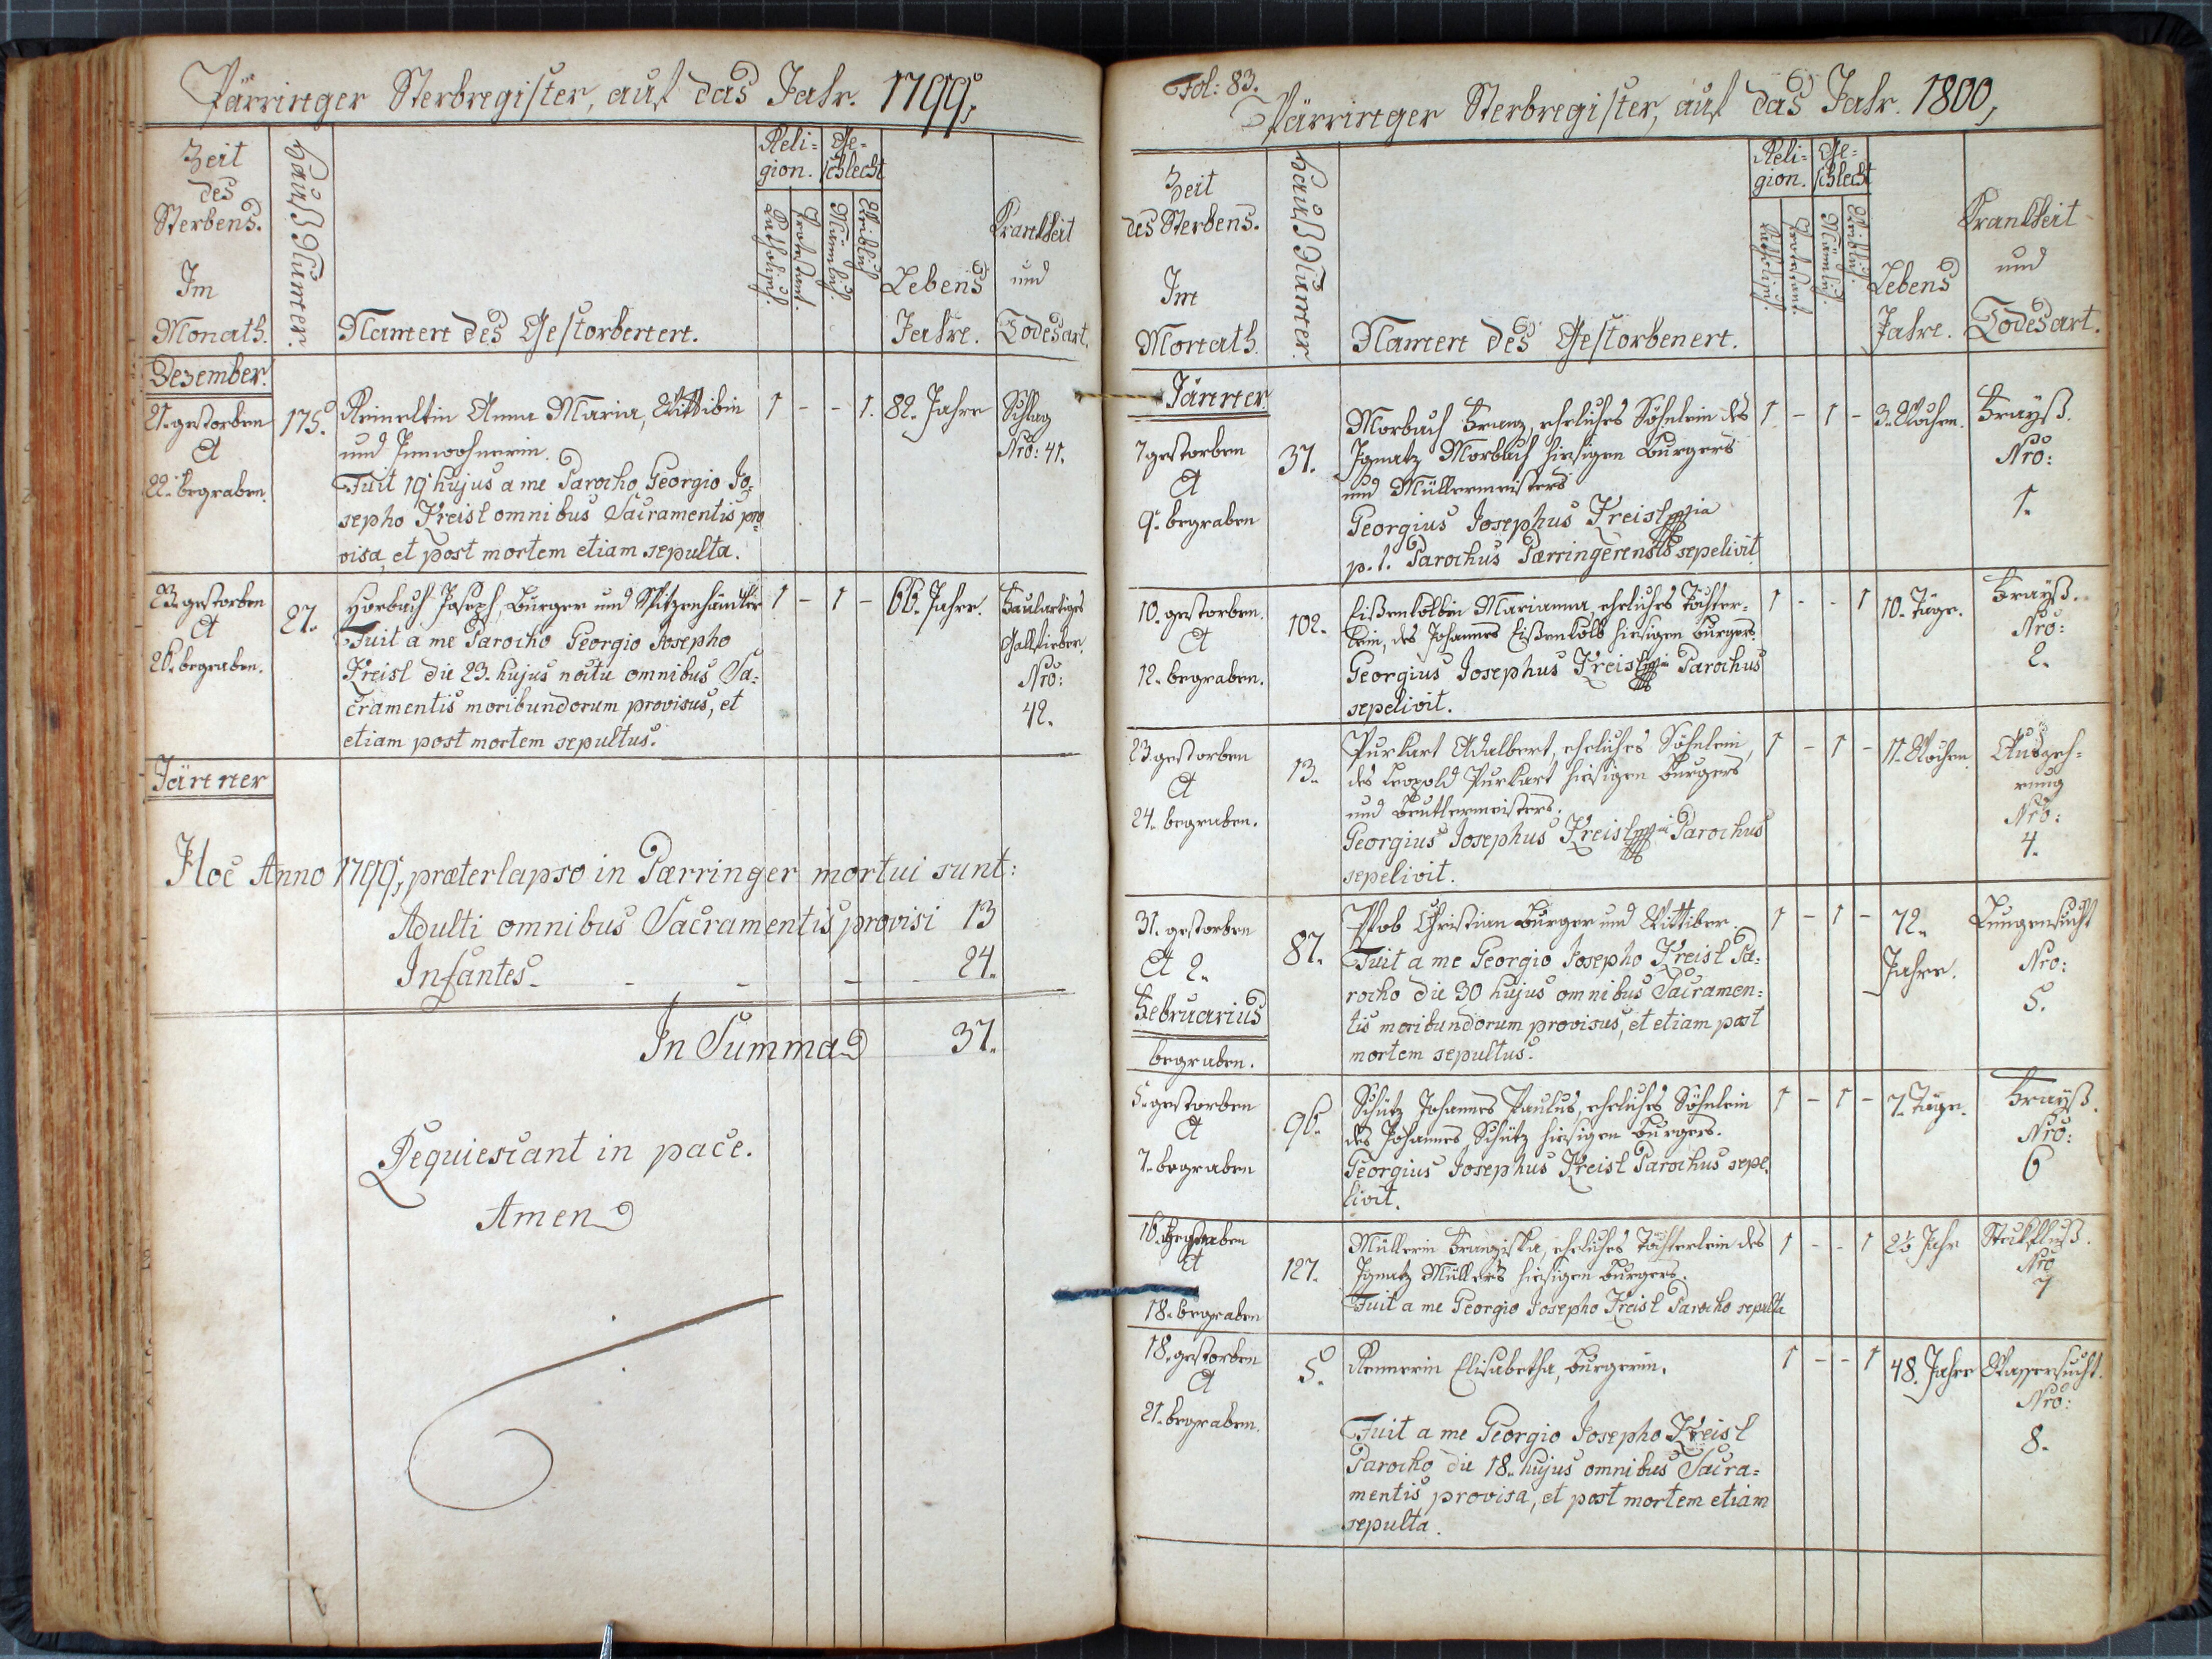 Pärringer Sterbregister, auf das Jahr. 1799,
Zeit
des
Sterbens.
Im
Monath.
Hauß Numer.
Namen des Gestorbenen.
Reli=
gion.
Katholisch.
Protestant.
Ge=
schlecht
Mänlich.
Weiblich
Lebens
Jahre.
Krankheit
und
Todesart.
Dezember.
21. gestorben
Et
22. begraben.
175.
Reineltin Anna Maria, Wittibin
und Innwohnerin.
Fuit 19 hujus a me Parocho Georgio Jo=
sepho Kreisl omnibus Sacramentis pro
visa, et post mortem etiam sepulta.
1 - - 1. 82. Jahre
Schlag
Nro: 41.
23. gestorben
Et
26. begraben.
27.
Horbach Joseph, Burger und Spitzenhändler
Fuit a me Parocho Georgio Josepho
Kreisl die 23. hujus noctu omnibus Sa=
cramentis moribundorum provisus, et
etiam post mortem sepultus.
1 - 1 - 66. Jahre.
Faulartiges
Gallfieber.
Nro:
42.
Jänner
Hoc Anno 1799, præterlapso in Pærringer mortui sunt:
Adulti omnibus Sacramentis provisi 13
Infantes - - - - 24.
In Summa 37.
Requiescant in pace.
Amen
Fol: 83.
Pärringer Sterbregister, auf das Jahr. 1800,
Zeit
des Sterbens.
Im
Monath.
Hauß Numer.
Namen des Gestorbenen.
Reli=
gion.
Katholisch.
Protestant.
Ge=
schlecht
Mänlich.
Weiblich.
Lebens
Jahre.
Krankheit
und
Todesart.
Jänner
7 gestorben
Et
9. begraben
37.
Morbach Franz, eheliches Söhnlein des
Ignatz Morbach hiesigen Burgers
und Müllermeisters
Georgius Josephus Kreisl
p. t. Parochus Pærringerensis sepelivit
1 - 1 - 3. Wochen.
Frayß.
Nro:
1.
10. gestorben.
Et
12. begraben.
102.
Eißenkolbin Marianna, eheliches Töchter=
lein, des Johannes Eißenkolb hiesigen Burgers.
Georgius Josephus Kreisl Parochus
sepelivit.
1 - - 1 10. Täge.
Frayß.
Nro:
2.
23. gestorben
Et
24. begraben.
13.
Purkart Adalbert, eheliches Söhnlein,
des Leopold Purkart hiesigen Burgers
und Beutlermeisters.
Georgius Josephus Kreisl Parochus
sepelivit.
1 - 1 - 11. Wochen
Auszeh=
rung
Nro:
4.
31. gestorben
Et 2.
Februarius
begraben.
87.
Plob Christian Burger und Wittiber.
Fuit a me Georgio Josepho Kreisl Pa=
rocho die 30 hujus omnibus Sacramen=
tis moribundorum provisus, et etiam post
mortem sepultus.
1 - 1 - 72.
Jahre.
Lungensucht
Nro:
5.
5. gestorben
Et
7. begraben
96.
Schütz Johannes Paulus, eheliches Söhnlein
des Johannes Schütz hiesigen Burgers.
Georgius Josephus Kreisl Parochus sepe.
livit.
1 - 1 - 7. Täge.
Frayß.
Nro:
6
16. gestorben
Et
18. begraben
127.
Müllerin Franziska, eheliches Töchterlein des
Ignatz Müllers hiesigen Burgers.
Fuit a me Georgio Josepho Kreisl Parocho sepulta
1 - - 1 2½ Jahr
Steckfluß.
Nro
7
18. gestorben
Et
21. begraben.
5.
Rennerin Elisabetha, Burgerin.
Fuit a me Georgio Josepho Kreisl
Parocho die 18. hujus omnibus Sacra=
mentis provisa, et post mortem etiam
sepulta.
1 - - 1 48. Jahre
Wassersucht.
Nro:
8.